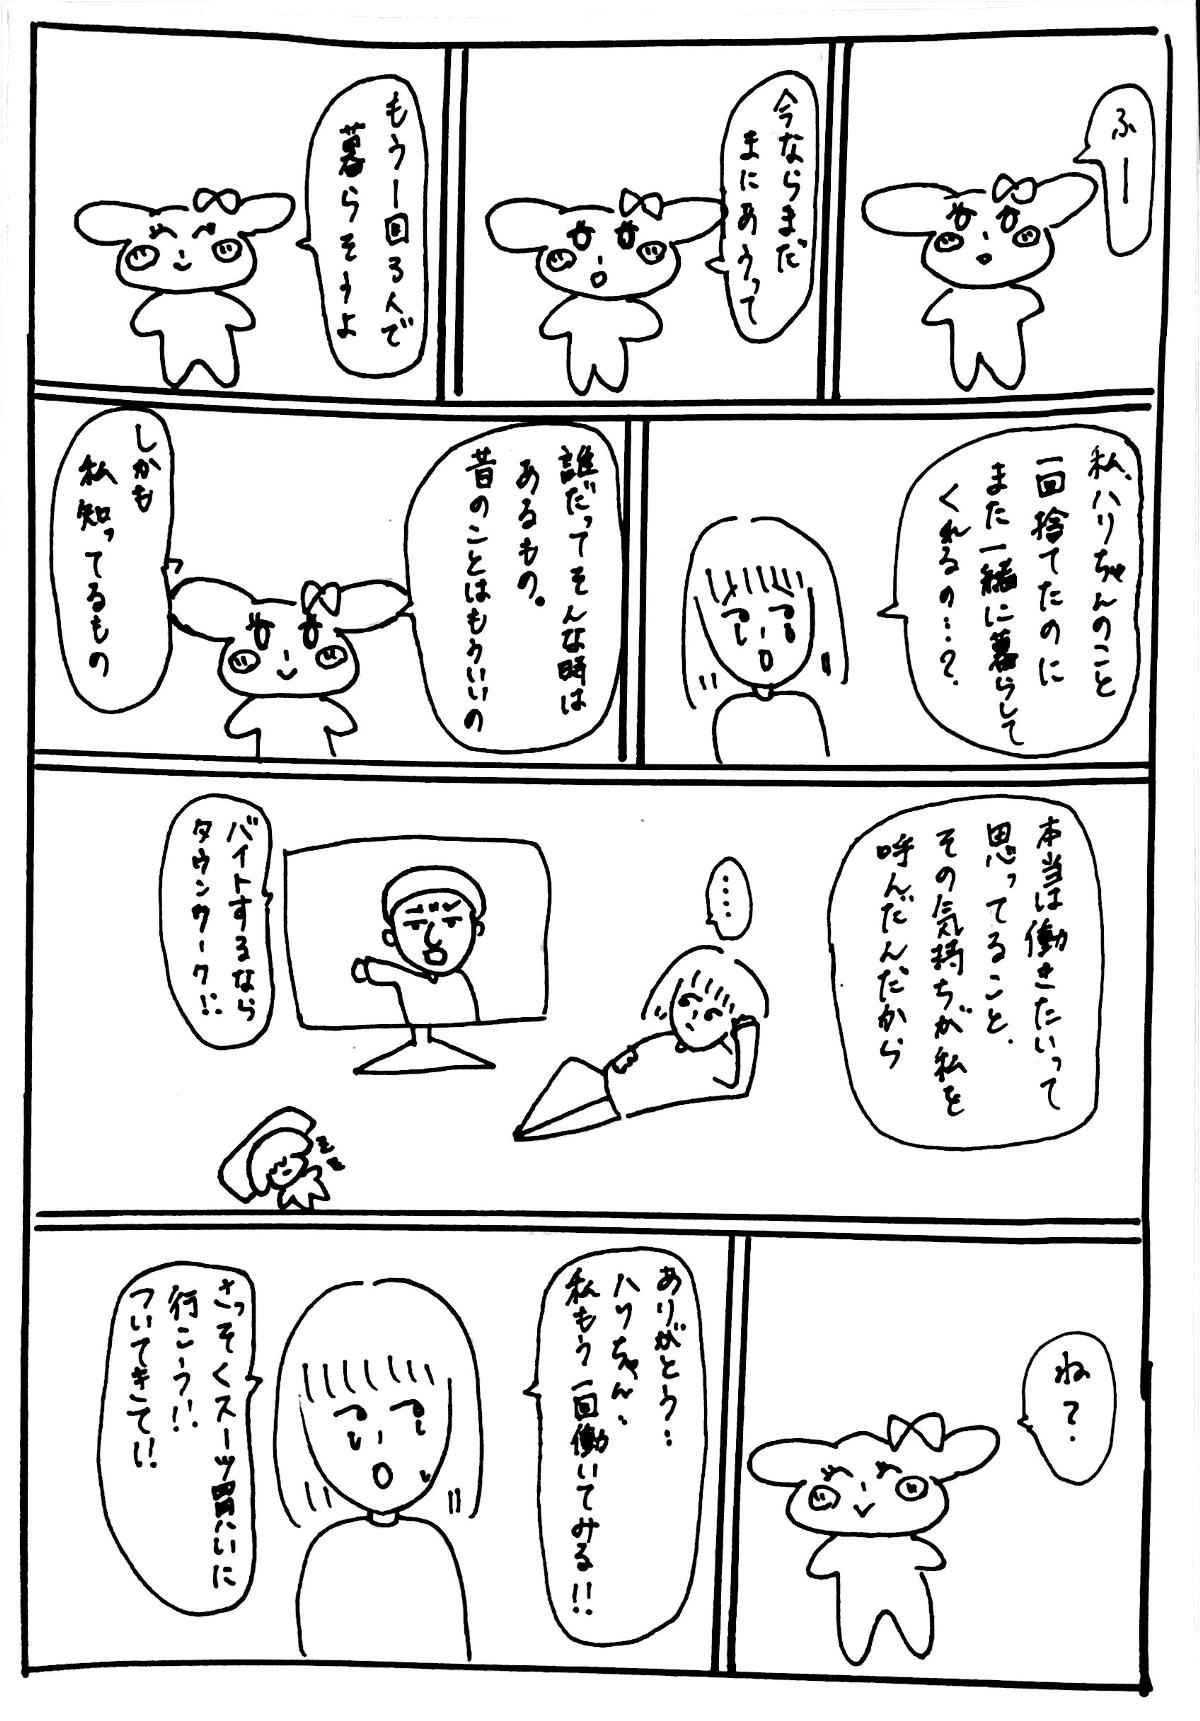 ふー
今ならまだ
まにあうって
もう一回3人で
暮らそうよ
私、ハリちゃんのこと
一回捨てたのに
また一緒に暮らして
くれるの…？
誰だってそんな時は
あるもの。
昔のことはもういいの
しかも
私知ってるもの
本当は働きたいって
思ってること、
その気持ちが私を
呼んだんだから
……
バイトするなら
タウンワーク!!
ね？
ありがとう…
ハリちゃん…
私もう一回働いてみる!!
さっそくスーツ買いに
行こう!!
ついてきて!!